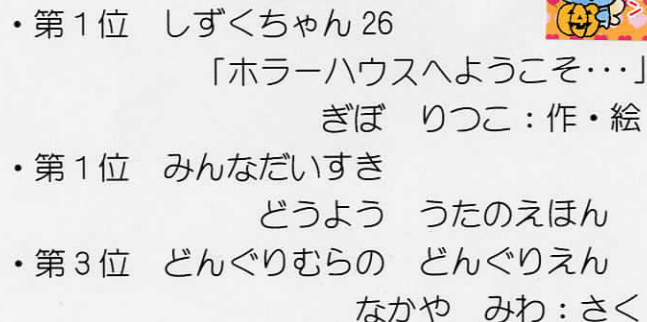 ・第1位　しずくちゃん 26
「ホラーハウスへようこそ・・・」
ぎぼ　りつこ：作・絵
・第1位　みんなだいすき
どうよう　うたのえほん
・第3位　どんぐりむらの　どんぐりえん
なかや　みわ：さく